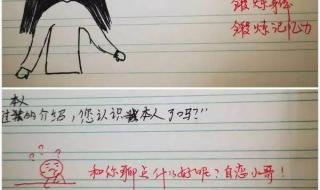 锻炼
锻炼记忆力
本人
的介绍，您认识本人了吗？”
和你聊点什么好呢？自恋小哥！